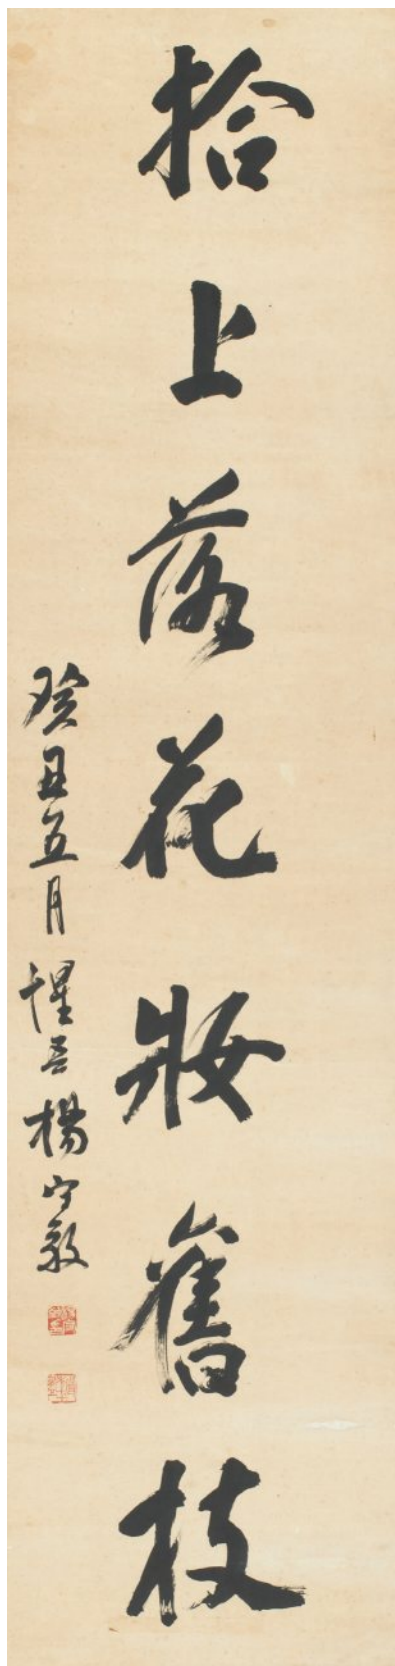 拾上落花妝舊枝
癸丑五月惺吾楊守敬